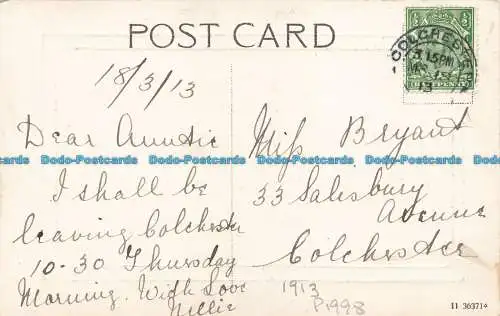 POST CARD
COLCHESTER
3.15PM
MR 18
13
18/3/13
Dear Auntie
I shall be
leaving Colchester
10-30 Thursday
Morning. With Love
Nellie
Miss Bryant
33 Salesbury
Avenue
Colchester
1913
P1998
11 36371*
Dodo-Postcards Dodo-Postcards Dodo-Postcards Dodo-Postcards Dodo-Postcards
Dodo-Postcards Dodo-Postcards Dodo-Postcards Dodo-Postcards Dodo-Postcards